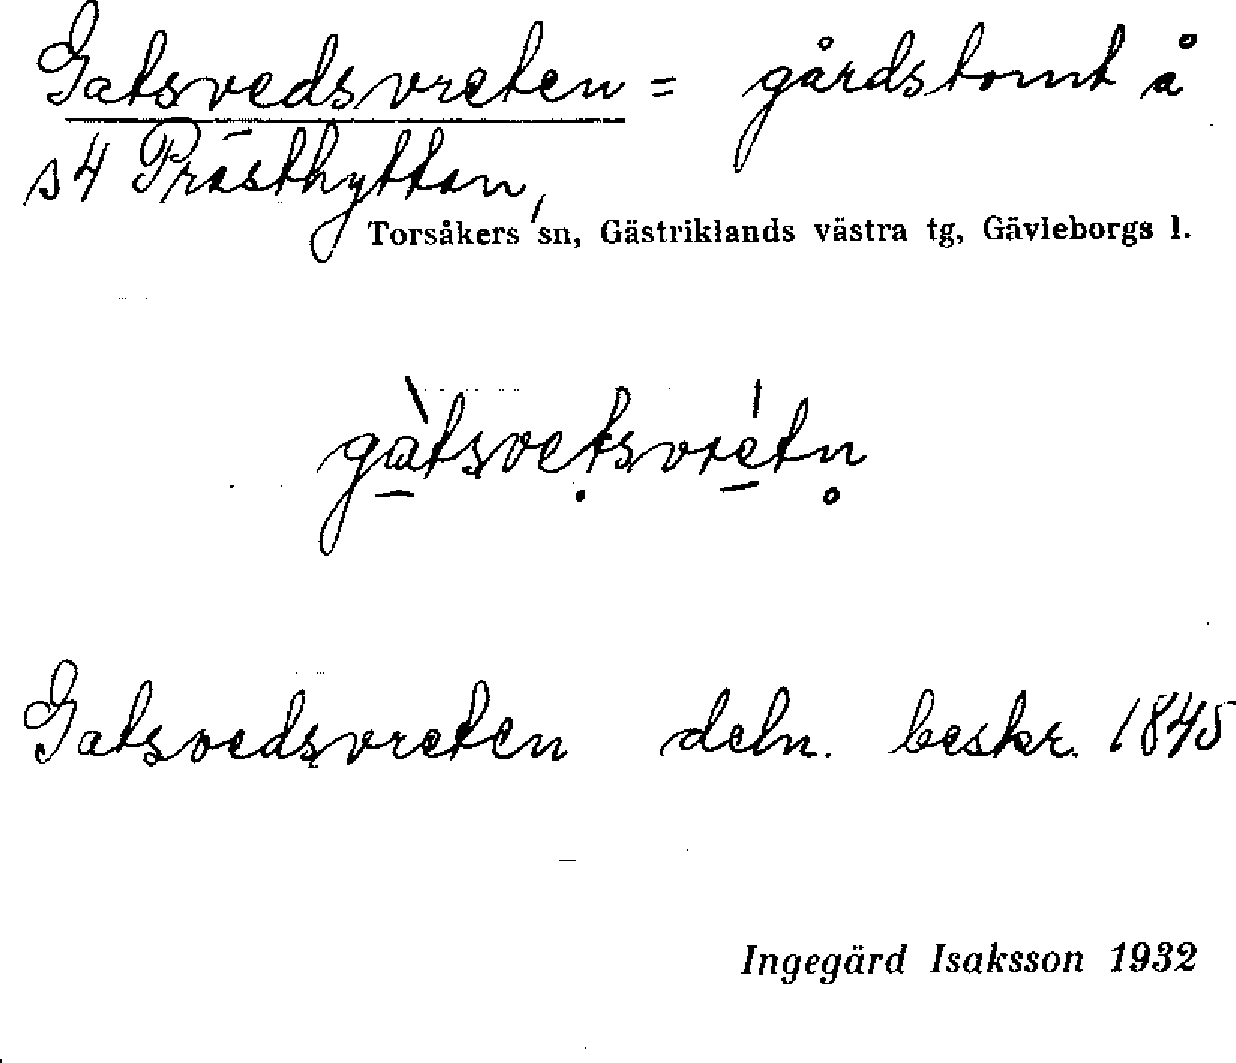 Gatsvedsvreten = gårdstomt å
s4 Prästhyttan,
Torsåkers sn, Gästriklands västra tg, Gävleborgs l.
gàtsvetsvrétn
Gatsvedsvreten deln. beskr. 1845
Ingegärd Isaksson 1932